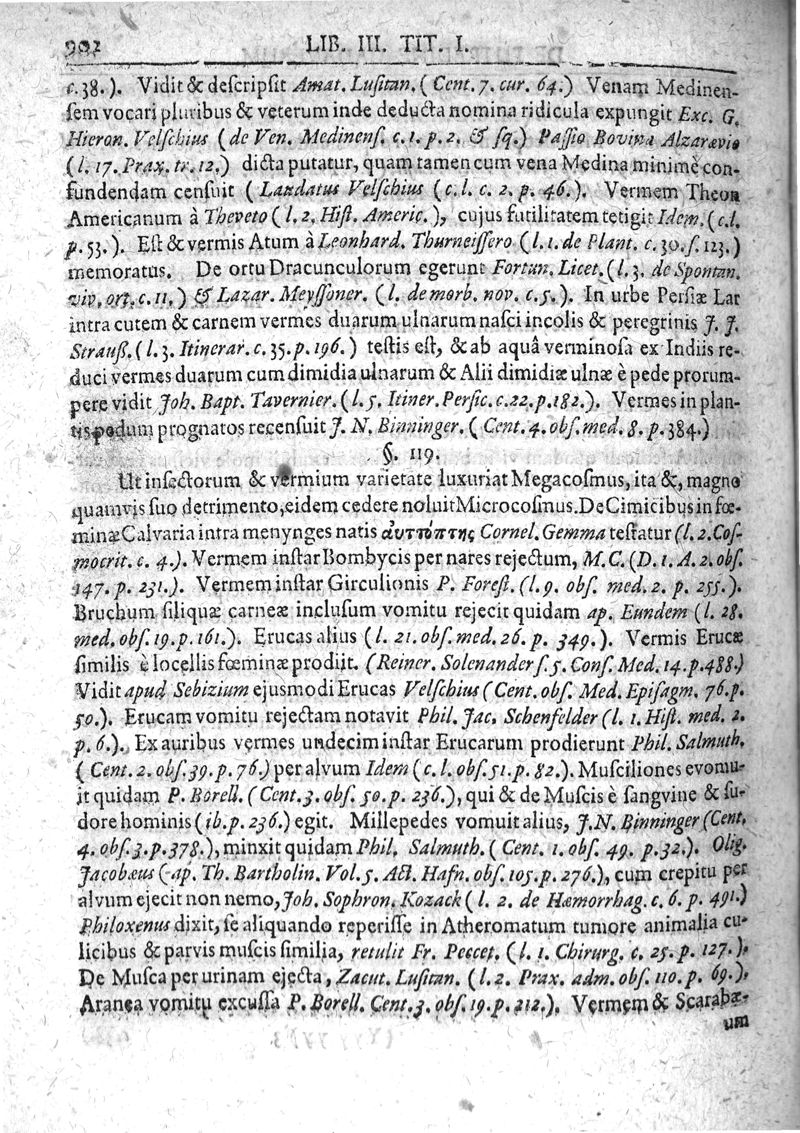 902 LIB. III. TIT. I.
c.38.). Vidit & deſcripſit Amat. Luſitan. ( Cent. 7. cur. 64.) Venam Medinen-
ſem vocari pluribus & veterum inde deducta nomina ridicula expungit Exc. G.
Hieron. Velſchius (de Ven. Medinenſ. c. 1. p. 2. & ſq.) Paſſio Bovina Alzaravio
(l. 17. Prax. tr. 12.) dicta putatur, quam tamen cum vena Medina minimè con-
fundendam cenſuit ( Laudatus Velſchius ( c. l. c. 2. p. 46.). Vermem Theon
Americanum à Theveto ( l. 2. Hiſt. Americ.), cujus futilitatem tetigit Idem. (c.l.
p. 53.). Eſt & vermis Atum à Leonhard. Thurneiſſero (l. 1. de Plant. c. 30. f. 123.)
memoratus. De ortu Dracunculorum egerunt Fortun. Licet. (l. 3. de Spontan.
viv. ort. c. 11.) & Lazar. Meyſſoner. (l. de morb. nov. c. 5.). In urbe Perſiæ Lar
intra cutem & carnem vermes duarum ulnarum naſci incolis & peregrinis J. J.
Strauß. (l. 3. Itinerar. c. 35. p. 196.) teſtis eſt, & ab aquâ verminoſa ex Indiis re-
duci vermes duarum cum dimidia ulnarum & Alii dimidiæ ulnæ è pede prorum-
pere vidit Joh. Bapt. Tavernier. (l. 5. Itiner. Perſic. c. 22. p. 182.). Vermes in plan-
tis pedum prognatos recenſuit J. N. Binninger. ( Cent. 4. obſ. med. 8. p. 384.)
§. 119.
Ut inſectorum & vermium varietate luxuriat Megacoſmus, ita &, magno
quamvis ſuo detrimento, eidem cedere noluit Microcoſmus. De Cimicibus in fœ-
minæ Calvaria intra menynges natis αυττόπτης Cornel. Gemma teſtatur (l. 2. Coſ-
mocrit. c. 4.). Vermem inſtar Bombycis per nares rejectum, M. C. (D. 1. A. 2. obſ.
147. p. 231.). Vermem inſtar Girculionis P. Foreſt. (l. 9. obſ. med. 2. p. 255.).
Bruchum ſiliquæ carneæ incluſum vomitu rejecit quidam ap. Eundem (l. 28.
med. obſ. 19. p. 161.). Erucas alius ( l. 21. obſ. med. 26. p. 349.). Vermis Erucæ
ſimilis è locellis fœminæ prodiit. (Reiner. Solenander ſ. 5. Conſ. Med. 14. p. 488.)
Vidit apud Sebizium ejusmodi Erucas Velſchius (Cent. obſ. Med. Epiſagm. 76. p.
50.). Erucam vomitu rejectam notavit Phil. Jac. Schenfelder (l. 1. Hiſt. med. 2.
p. 6.). Ex auribus vermes undecim inſtar Erucarum prodierunt Phil. Salmuth.
( Cent. 2. obſ. 39. p. 76.) per alvum Idem ( c. l. obſ. 51. p. 82.). Muſciliones evomu-
it quidam P. Borell. ( Cent. 3. obſ. 50. p. 236.), qui & de Muſcis è ſangvine & ſu-
dore hominis (ib. p. 236.) egit. Millepedes vomuit alius, J. N. Binninger (Cent.
4. obſ. 3. p. 378.), minxit quidam Phil. Salmuth. ( Cent. 1. obſ. 49. p. 32.). Olig.
Jacobæus ( ap. Th. Bartholin. Vol. 5. Act. Hafn. obſ. 105. p. 276.), cum crepitu per
alvum ejecit non nemo, Joh. Sophron. Kozack ( l. 2. de Hæmorrhag. c. 6. p. 491.)
Philoxenus dixit, ſe aliquando reperiſſe in Atheromatum tumore animalia cu-
licibus & parvis muſcis ſimilia, retulit Fr. Peccet. ( l. 1. Chirurg. c. 25. p. 127.).
De Muſca per urinam ejecta, Zacut. Luſitan. (l. 2. Prax. adm. obſ. 110. p. 69.).
Aranea vomitu excuſſa P. Borell. Cent. 3. obſ. 19. p. 212.). Vermem & Scarabæ-
um